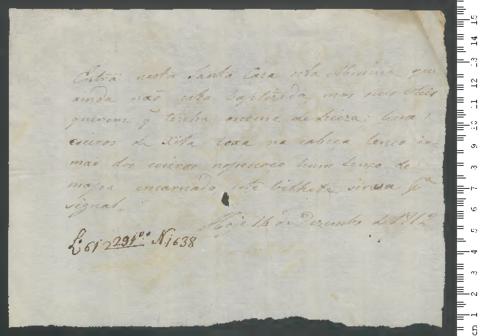 Entra nesta Santa Caza esta Menina que
ainda não esta Baptizada mas seus Pais
querem q tenha o nome de Luiza: leva
coeiros de Xita roxa na cabeça lenço
mao dos coeiros no pescoço hum lenço de
encarnado este bilhete sirva pª
signal.
Hoje 14 de Dezembro de 1812
Lº 61 229 N 1638